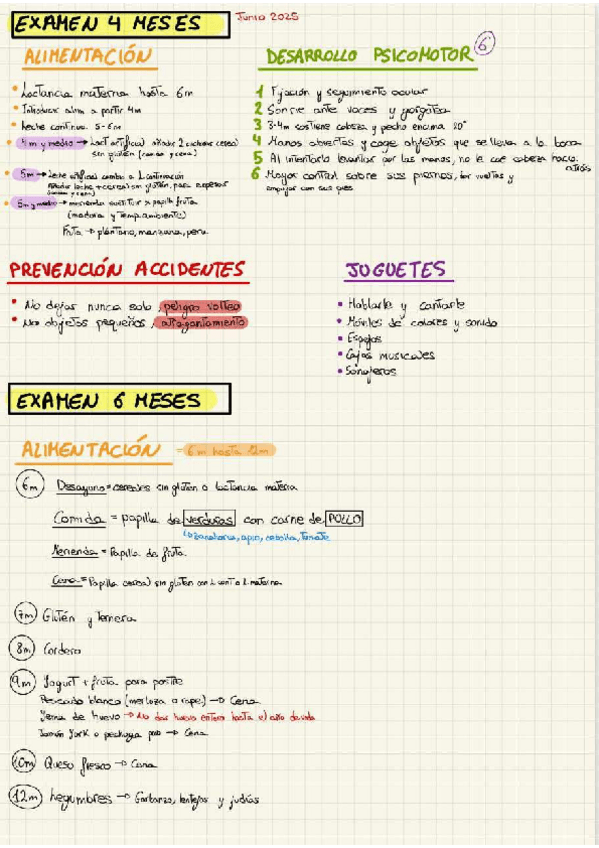 EXAMEN 4 MESES Junio 2025
ALIMENTACIÓN
• Lactancia materna hasta 6m
• Introducir alim a partir 4m
• Leche continua 5-6m
• 4m y medio → Lact artificial añadir 2 cucharas cereal
sin gluten (comida y cena)
• 5m → Leche artificial cambio a L continuación
añadir leche + cereal sin gluten, para espesar
• 5m y medio → merienda sustituir x papilla fruta
(madura y temp. ambiente)
Fruta → plátano, manzana, pera
DESARROLLO PSICOMOTOR 6
1 Fijación y seguimiento ocular
2 Sonríe ante voces y gorgotea
3 3-4m sostiene cabeza y pecho encima 90°
4 Manos abiertas y coge objetos que se lleva a la boca
5 Al intentarlo levantar por las manos, no le cae cabeza hacia
atrás
6 Mayor control sobre sus piernas, dar vueltas y
empujar con sus pies
PREVENCIÓN ACCIDENTES
• No dejar nunca solo, peligro volteo
• No objetos pequeños, atragantamiento
JUGUETES
• Hablarle y cantarle
• Móviles de colores y sonido
• Espejos
• Cajas musicales
• Sonajeros
EXAMEN 6 MESES
ALIMENTACIÓN - 6m hasta 12m
6m Desayuno = cereales sin gluten o lactancia materna
Comida = papilla de verduras con carne de POLLO
↳ zanahoria, apio, cebolla, tomate
Merienda = Papilla de fruta
Cena = Papilla cereal sin gluten con L cont o L materna
7m Glutén y ternera
8m Cordero
9m Yogurt + fruta para postre
Pescado blanco (merluza o rape) → Cena
Yema de huevo → No dar huevo entero hasta el año de vida
Jamón York o pechuga pavo → Cena
10m Queso fresco → Cena
12m Legumbres → Garbanzo, lentejas y judías